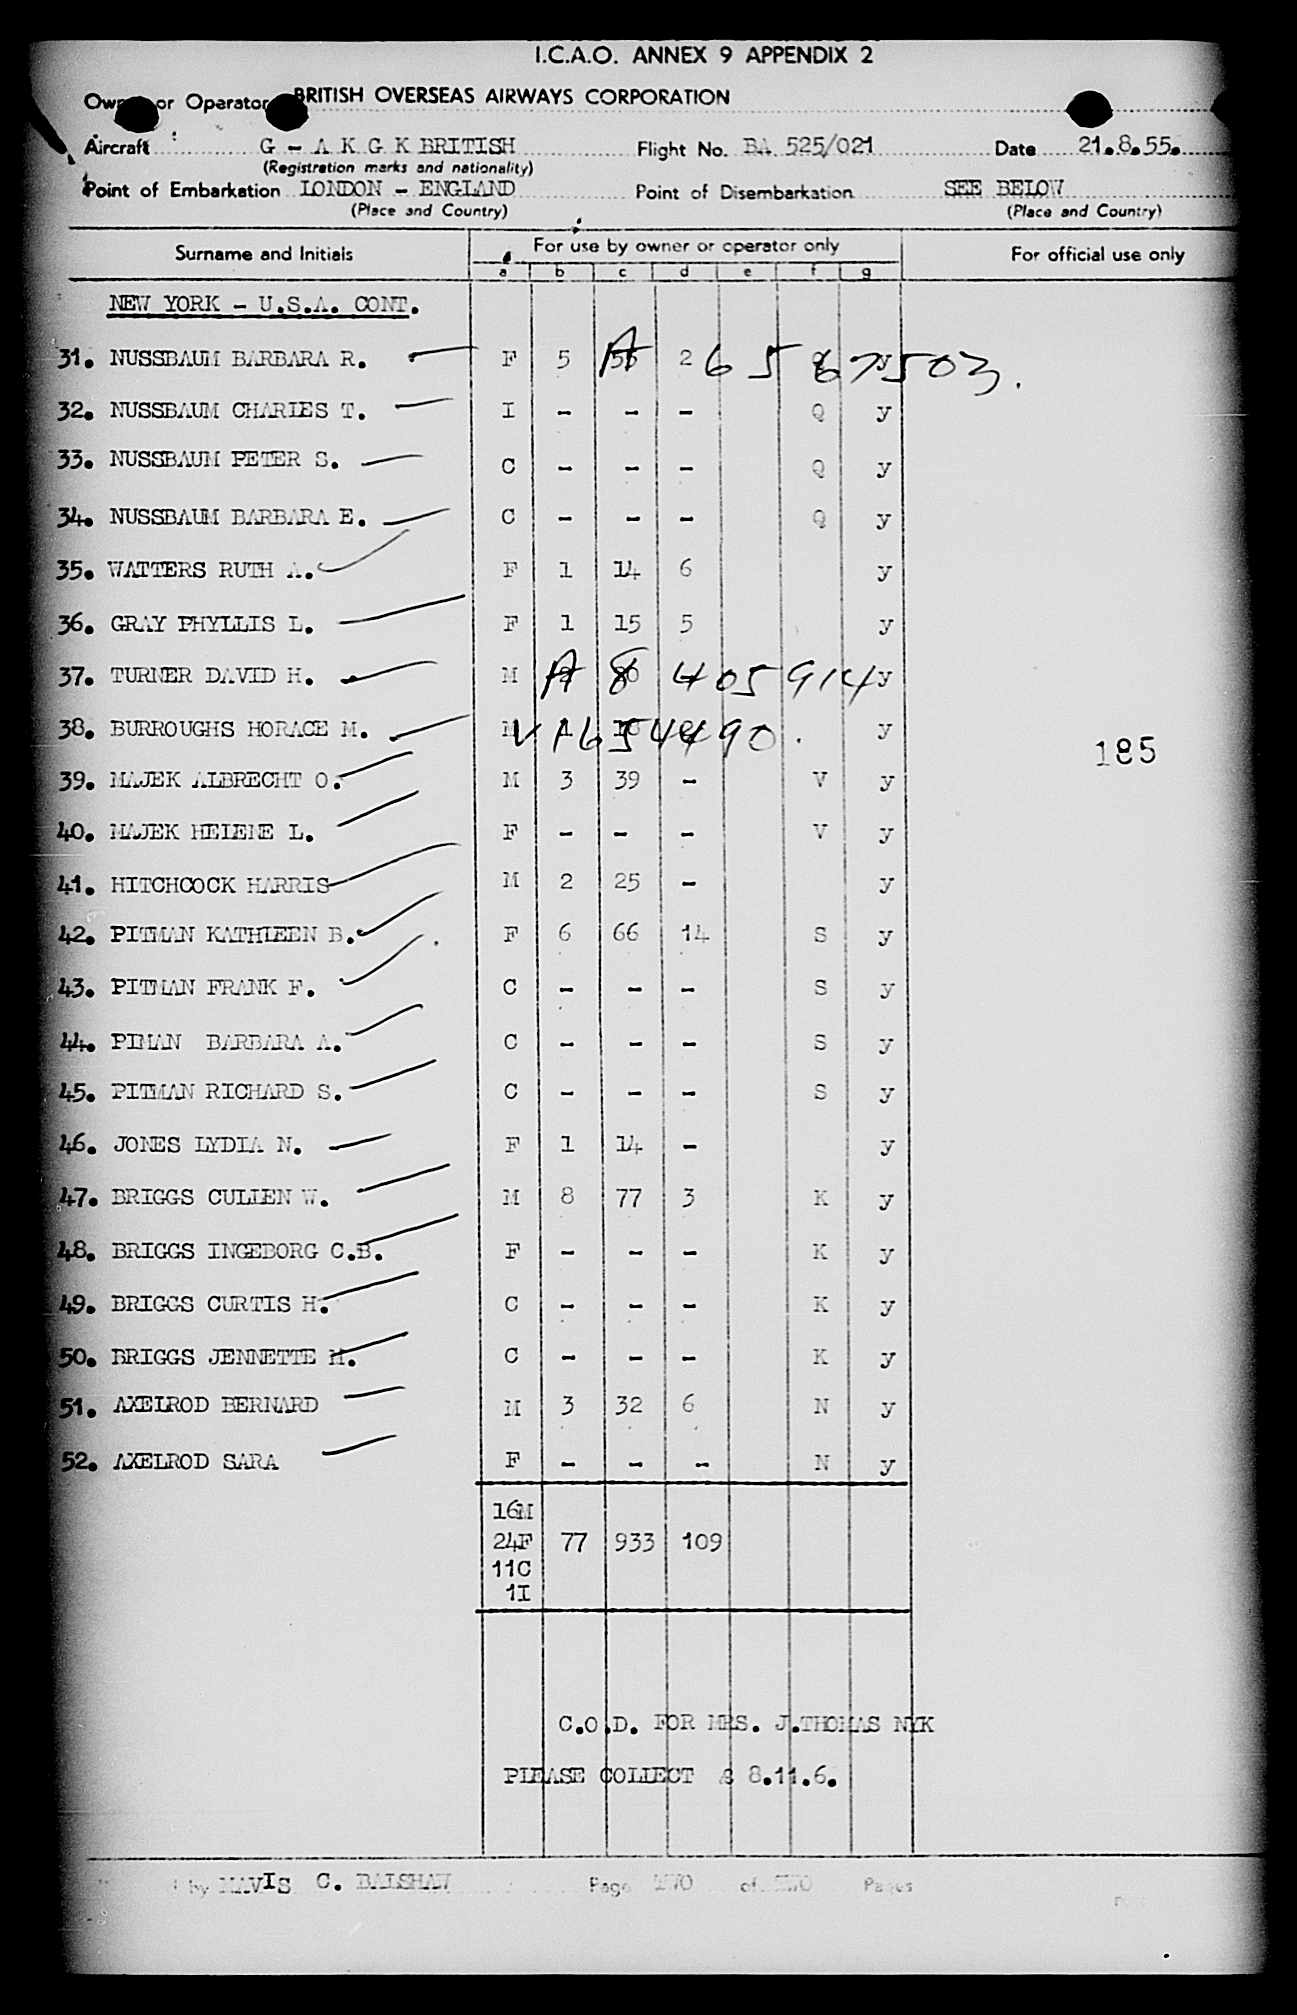 I.C.A.O. ANNEX 9 APPENDIX 2
Owner or Operator BRITISH OVERSEAS AIRWAYS CORPORATION
Aircraft G - A K G K BRITISH Flight No. BA 525/021 Date 21.8.55.
(Registration marks and nationality)
Point of Embarkation LONDON - ENGLAND Point of Disembarkation SEE BELOW
(Place and Country) (Place and Country)
Surname and Initials For use by owner or operator only For official use only
a b c d e f g
NEW YORK - U.S.A. CONT.
31. NUSSBAUM BARBARA R. F 5 2 A 6 5 6 7 503.
32. NUSSBAUM CHARLES T. I - - - Q y
33. NUSSBAUM PETER S. C - - - Q y
34. NUSSBAUM BARBARA E. C - - - Q y
35. WATTERS RUTH A. F 1 14 6 y
36. GRAY PHYLLIS L. F 1 15 5 y
37. TURNER DAVID H. M A 8 405 914 y
38. BURROUGHS HORACE M. M V1654490. y
185
39. MAJEK ALBRECHT O. M 3 39 - V y
40. MAJEK HELENE L. F - - - V y
41. HITCHCOCK HARRIS M 2 25 - y
42. PITMAN KATHLEEN B. F 6 66 14 S y
43. PITMAN FRANK F. C - - - S y
44. PIMAN BARBARA A. C - - - S y
45. PITMAN RICHARD S. C - - - S y
46. JONES LYDIA N. F 1 14 - y
47. BRIGGS CULLEN W. M 8 77 3 K y
48. BRIGGS INGEBORG C.B. F - - - K y
49. BRIGGS CURTIS H. C - - - K y
50. BRIGGS JENNETTE H. C - - - K y
51. AXELROD BERNARD M 3 32 6 N y
52. AXELROD SARA F - - - N y
16M
24F 77 933 109
11C
1I
C.O.D. FOR MRS. J.THOMAS NYK
PLEASE COLLECT 8.11.6.
by MAVIS C. BALSHAW Page TWO of TWO Pages